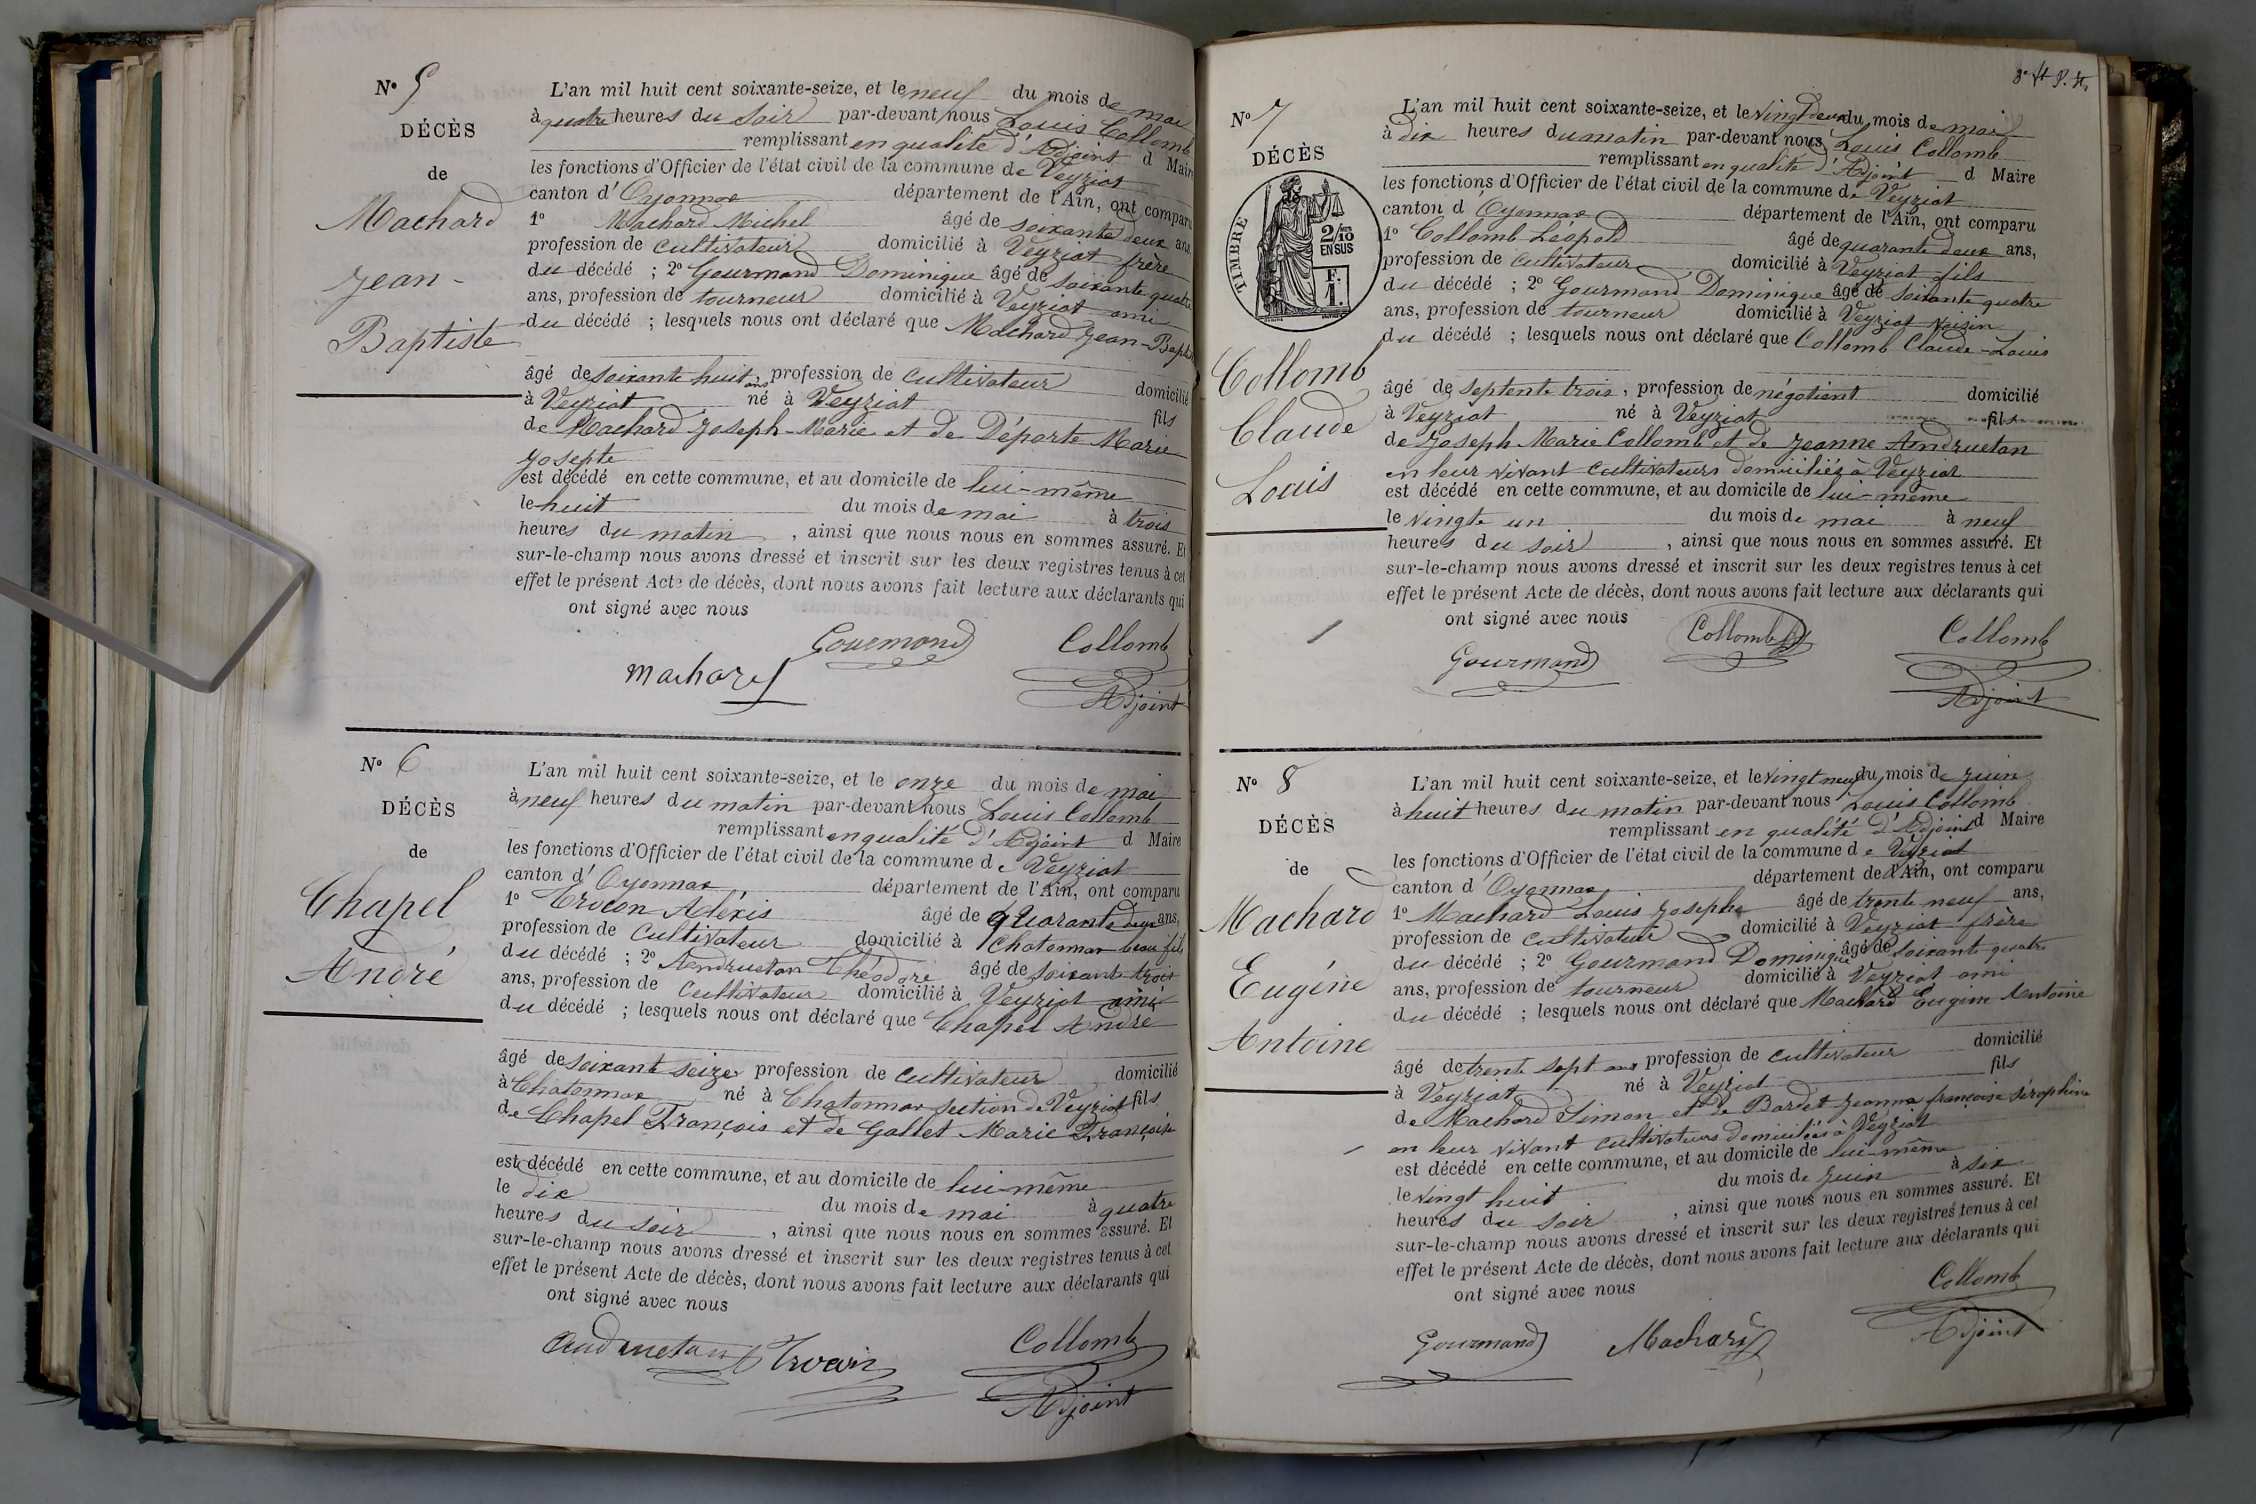 N° 5
DÉCÈS
de
Machard
Jean-
Baptiste
L'an mil huit cent soixante-seize, et le neuf du mois de mai
à quatre heures du soir par-devant nous Louis Collomb
remplissant en qualité d'Adjoint d Maire
les fonctions d'Officier de l'état civil de la commune de Veyziat
canton d'Oyonnax département de l'Ain, ont comparu
1° Machard Michel âgé de soixante deux ans,
profession de cultivateur domicilié à Veyziat frère
du décédé ; 2° Gourmand Dominique âgé de soixante quatre
ans, profession de tourneur domicilié à Veyziat ami
du décédé ; lesquels nous ont déclaré que Machard Jean-Baptiste
âgé de soixante huit ans, profession de cultivateur domicilié
à Veyziat né à Veyziat fils
de Machard Joseph-Marie et de Déporte Marie
Josepte
est décédé en cette commune, et au domicile de lui-même
le huit du mois de mai à trois
heures du matin, ainsi que nous nous en sommes assuré. Et
sur-le-champ nous avons dressé et inscrit sur les deux registres tenus à cet
effet le présent Acte de décès, dont nous avons fait lecture aux déclarants qui
ont signé avec nous
Gourmand Collomb
Machard
Adjoint
N° 6
DÉCÈS
de
Chapel
André
L'an mil huit cent soixante-seize, et le onze du mois de mai
à neuf heures du matin par-devant nous Louis Collomb
remplissant en qualité d'Adjoint d Maire
les fonctions d'Officier de l'état civil de la commune de Veyziat
canton d'Oyonnax département de l'Ain, ont comparu
1° Alexis âgé de quarante deux ans,
profession de cultivateur domicilié à Chatonnax beau fils
du décédé ; 2° Andruetan Théodore âgé de soixante trois
ans, profession de cultivateur domicilié à Veyziat ami
du décédé ; lesquels nous ont déclaré que Chapel André
âgé de soixant seize profession de cultivateur domicilié
à Chatonnax né à Chatonnax section de Veyziat fils
de Chapel François et de Gallet Marie Françoise
est décédé en cette commune, et au domicile de lui-même
le dix du mois de mai à quatre
heures du soir, ainsi que nous nous en sommes assuré. Et
sur-le-champ nous avons dressé et inscrit sur les deux registres tenus à cet
effet le présent Acte de décès, dont nous avons fait lecture aux déclarants qui
ont signé avec nous
Andruetan Collomb
Adjoint
N° 7
DÉCÈS
TIMBRE
2/10
EN SUS
F.
1.
Collomb
Claude
Louis
L'an mil huit cent soixante-seize, et le vingt deux du mois de mai
à dix heures du matin par-devant nous Louis Collomb
remplissant en qualité d'Adjoint d Maire
les fonctions d'Officier de l'état civil de la commune de Veyziat
canton d'Oyonnax département de l'Ain, ont comparu
1° Collomb Léopold âgé de quarante deux ans,
profession de cultivateur domicilié à Veyziat fils
du décédé ; 2° Gourmand Dominique âgé de soixante quatre
ans, profession de tourneur domicilié à Veyziat voisin
du décédé ; lesquels nous ont déclaré que Collomb Claude-Louis
âgé de septente trois, profession de négotient domicilié
à Veyziat né à Veyziat fils
de Joseph Marie Collomb et de Jeanne Andruetan
en leur vivant cultivateurs domiciliés à Veyziat
est décédé en cette commune, et au domicile de lui-même
le vingte un du mois de mai à neuf
heures du soir, ainsi que nous nous en sommes assuré. Et
sur-le-champ nous avons dressé et inscrit sur les deux registres tenus à cet
effet le présent Acte de décès, dont nous avons fait lecture aux déclarants qui
ont signé avec nous
Gourmand Collomb Collomb
Adjoint
N° 8
DÉCÈS
de
Machard
Eugéne
Antoine
L'an mil huit cent soixante-seize, et le vingt neuf du mois de juin
à huit heures du matin par-devant nous Louis Collomb
remplissant en qualité d'Adjoint d Maire
les fonctions d'Officier de l'état civil de la commune de Veyziat
canton d'Oyonnax département de l'Ain, ont comparu
1° Machard Louis Josephe âgé de trente neuf ans,
profession de cultivateur domicilié à Veyziat frère
du décédé ; 2° Gourmand Dominique âgé de soixante quatre
ans, profession de tourneur domicilié à Veyziat ami
du décédé ; lesquels nous ont déclaré que Machard Eugéne Antoine
âgé de trente sept ans profession de cultivateur domicilié
à Veyziat né à Veyziat fils
de Machard Simon et de Bardet Jeanne françoise Séraphine
en leur vivant cultivateurs domiciliés à Veyziat
est décédé en cette commune, et au domicile de lui-même
le vingt huit du mois de juin à six
heures du soir, ainsi que nous nous en sommes assuré. Et
sur-le-champ nous avons dressé et inscrit sur les deux registres tenus à cet
effet le présent Acte de décès, dont nous avons fait lecture aux déclarants qui
ont signé avec nous
Collomb
Gourmand Machard Adjoint